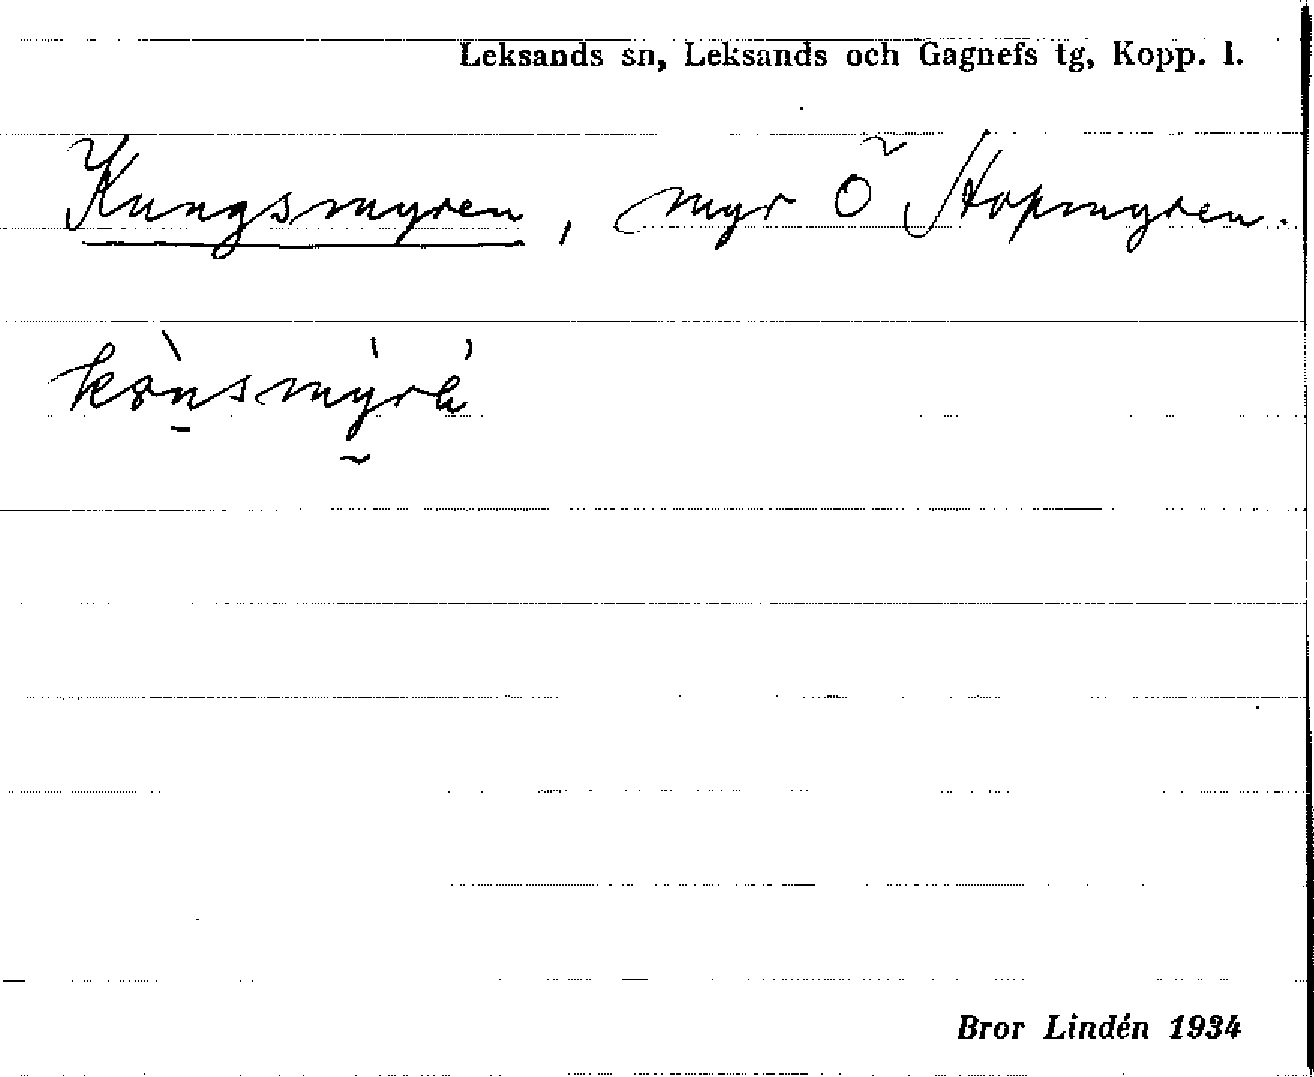 Leksands sn, Leksands och Gagnefs tg, Kopp. l.
Kungsmyren, myr Ö Hopmyren.
Bror Lindén 1934